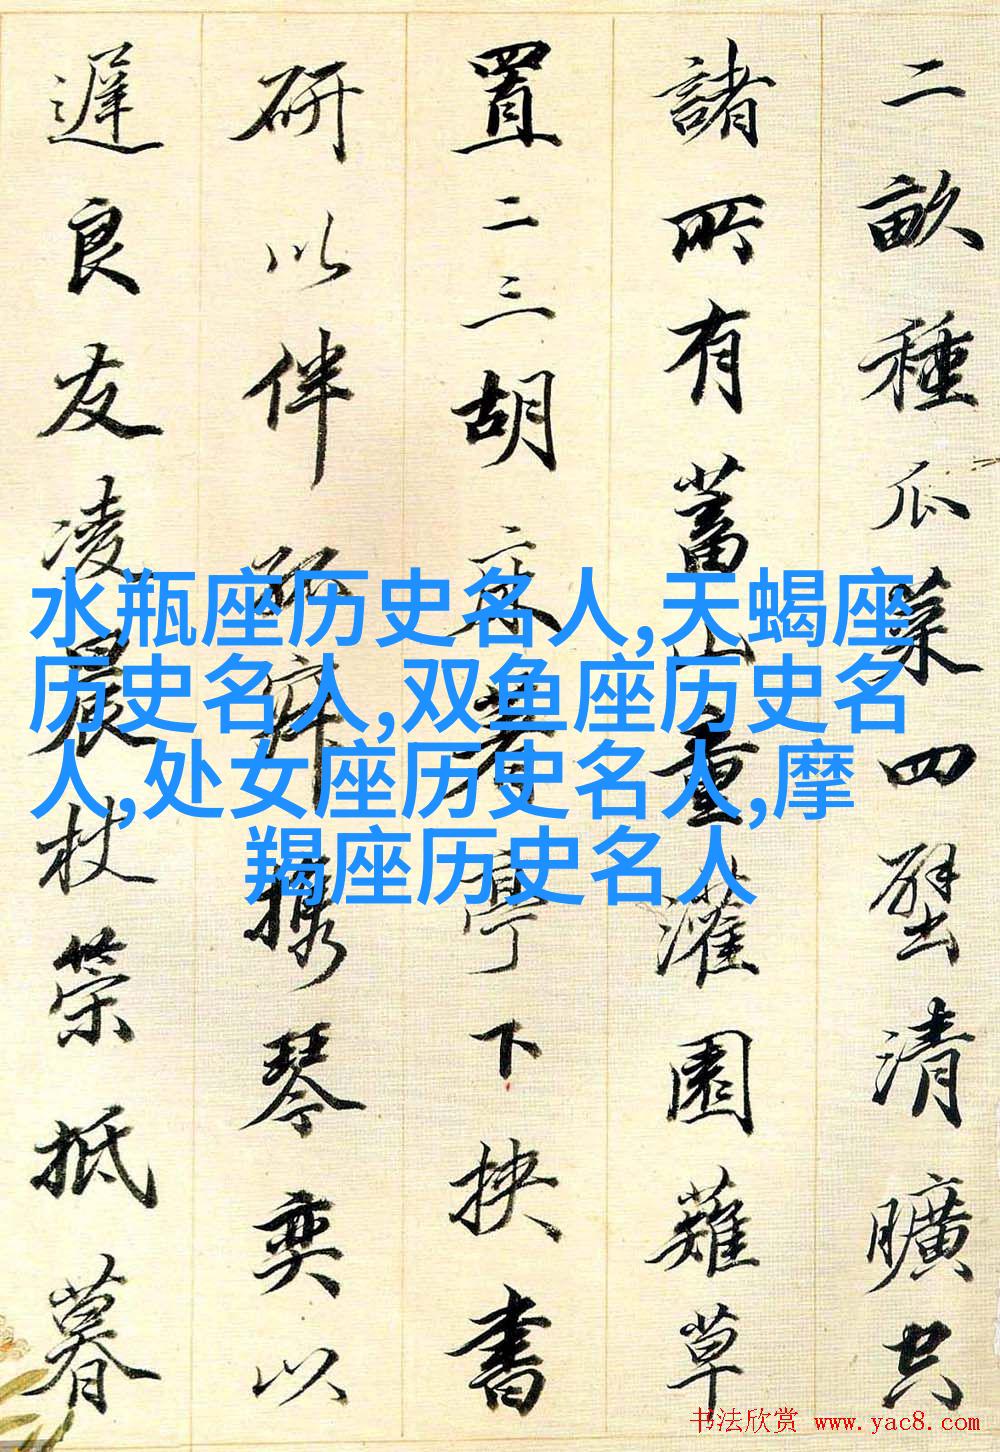 二畝種瓜菜四壁清曠共
諸所有蓄山童灌園薙草
置二三胡床著亭下挾書
研以伴孤寂攜琴奕以
遲良友凌晨杖策抵暮
水瓶座历史名人,天蝎座
历史名人,双鱼座历史名
人,处女座历史名人,摩
羯座历史名人
书法欣赏 www.yac8.com